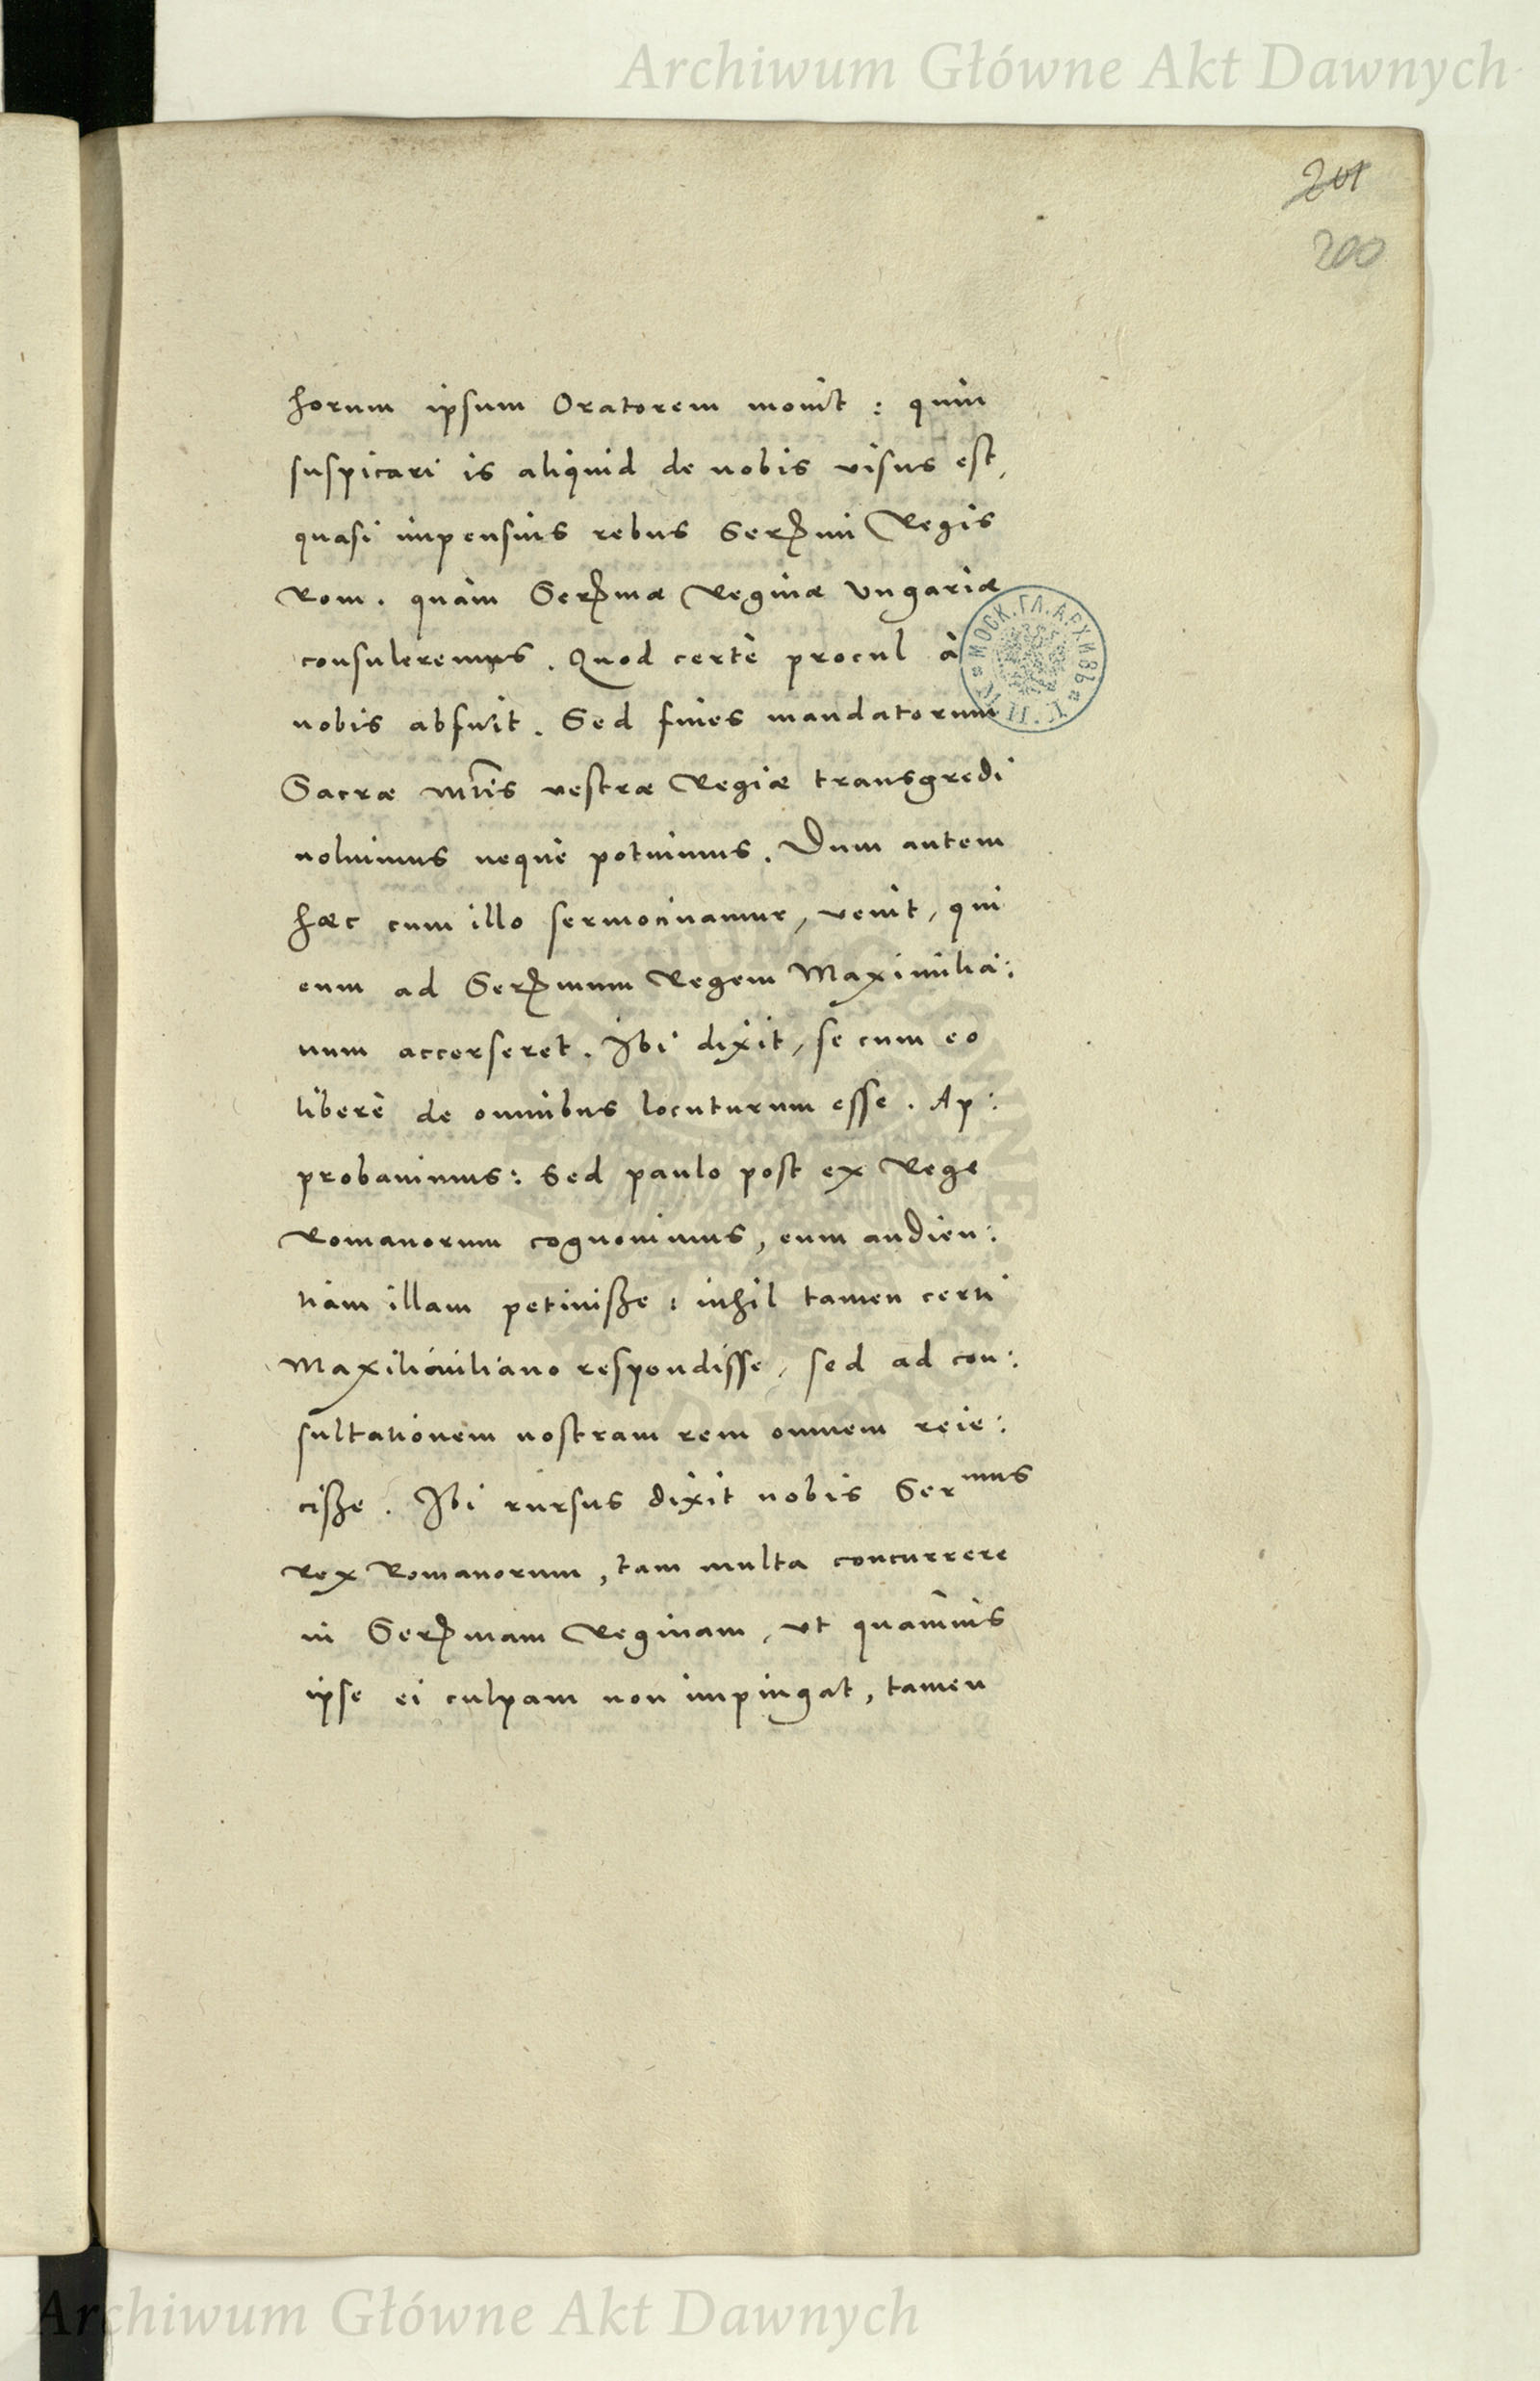 Archiwum Główne Akt Dawnych
201
200
horum ipsum Oratorem monuit : quin
suspicari is aliquid de nobis visus est,
quasi impensius rebus Sermi Regis
Rom. quàm Sermæ Reginæ Vngariæ
consuleremus. Quod certè procul à
nobis abfuit. Sed fines mandatorum
Sacræ Mtis vestræ Regiæ transgredi
noluimus neque potuimus. Dum autem
hæc cum illo sermocinamur, venit, qui
eum ad Sermum Regem Maximilia:
num accerseret. Ibi dixit, se cum eo
liberè de omnibus locuturum esse. Ap:
probauimus: Sed paulo post ex Rege
Romanorum cognouimus, eum audien:
tiam illam petiuisze : nihil tamen certi
Maximiliano respondisse, sed ad con:
sultationem nostram rem omnem reie:
cisze. Ibi rursus dixit nobis Sermus
Rex Romanorum, tam multa concurrere
in Sermam Reginam, vt quamuis
ipse ei culpam non impingat, tamen
МОСК. ГЛ. АРХИВЪ
Archiwum Główne Akt Dawnych